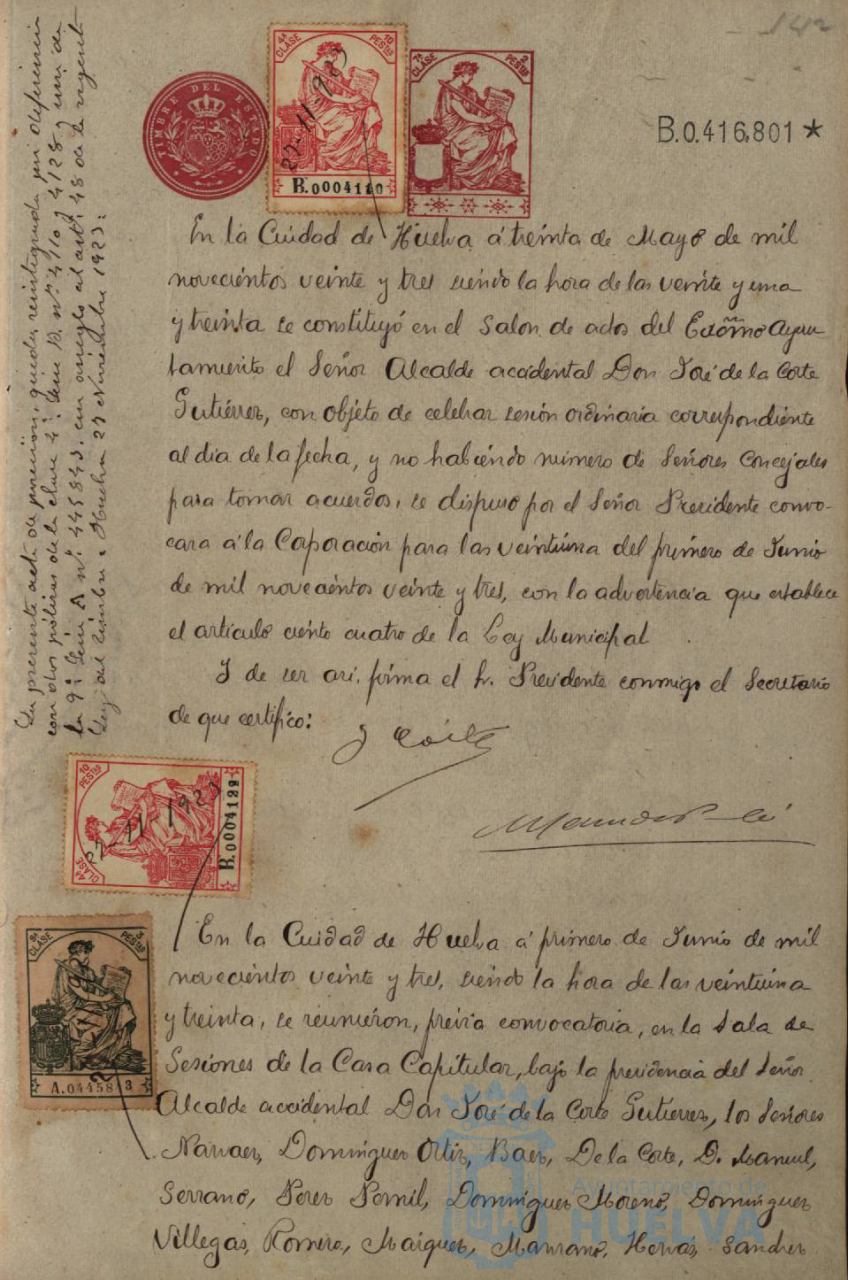 142
TIMBRE DEL ESTADO
4ª CLASE
10 PESTAS
22-11-923
B.0004110
7ª CLASE
3 PESTAS
B.0.416,801 *
La presente acta de sesión, queda reintegrada por diferencia
con dos pólizas de la clase 4ª. Serie B. nos 4110 y 4128 y una de
la 9ª Serie A nº 445843. con arreglo al artº 48 de la vigente
Ley del Timbre. Huelva 22 Noviembre 1923.
En la Cuidad de Huelva á treinta de Mayo de mil
novecientos veinte y tres siendo la hora de las veinte y una
y treinta se constituyó en el Salon de actos del Excmo Ayun
tamiento el Señor Alcalde accidental Don José de la Corte
Gutiérrez, con objeto de celebrar sesión ordinaria correspondiente
al dia de la fecha, y no habiendo número de Señores Concejales
para tomar acuerdos, se dispuso por el Señor Presidente convo-
cara á la Caporación para las veintiuna del primero de Junio
de mil novecientos veinte y tres, con la advertencia que establece
el artículo ciento cuatro de la Ley Municipal.
Y de ser asi, firma el Sr. Presidente conmigo el Secretario
de que certifico:
J Corte
4ª CLASE
10 PESTAS
22-11-1923
B.0004122
9ª CLASE
3 PESTAS
A.0445843
En la Cuidad de Huelva á primero de Junio de mil
novecientos veinte y tres, siendo la hora de las veintiuna
y treinta, se reunieron, previa convocatoria, en la Sala de
Sesiones de la Casa Capitular, bajo la presidencia del Señor
Alcalde accidental Don José de la Corte Gutierrez, los Señores
Narvaez, Dominguez Ortiz, Baez, De la Corte, D. Manuel,
Serrano, Perez Pernil, Dominguez Moreno, Dominguez
Villegas, Romero, Maiquez, Manzano, Hervás, Sanchez
Ayuntamiento de
HUELVA